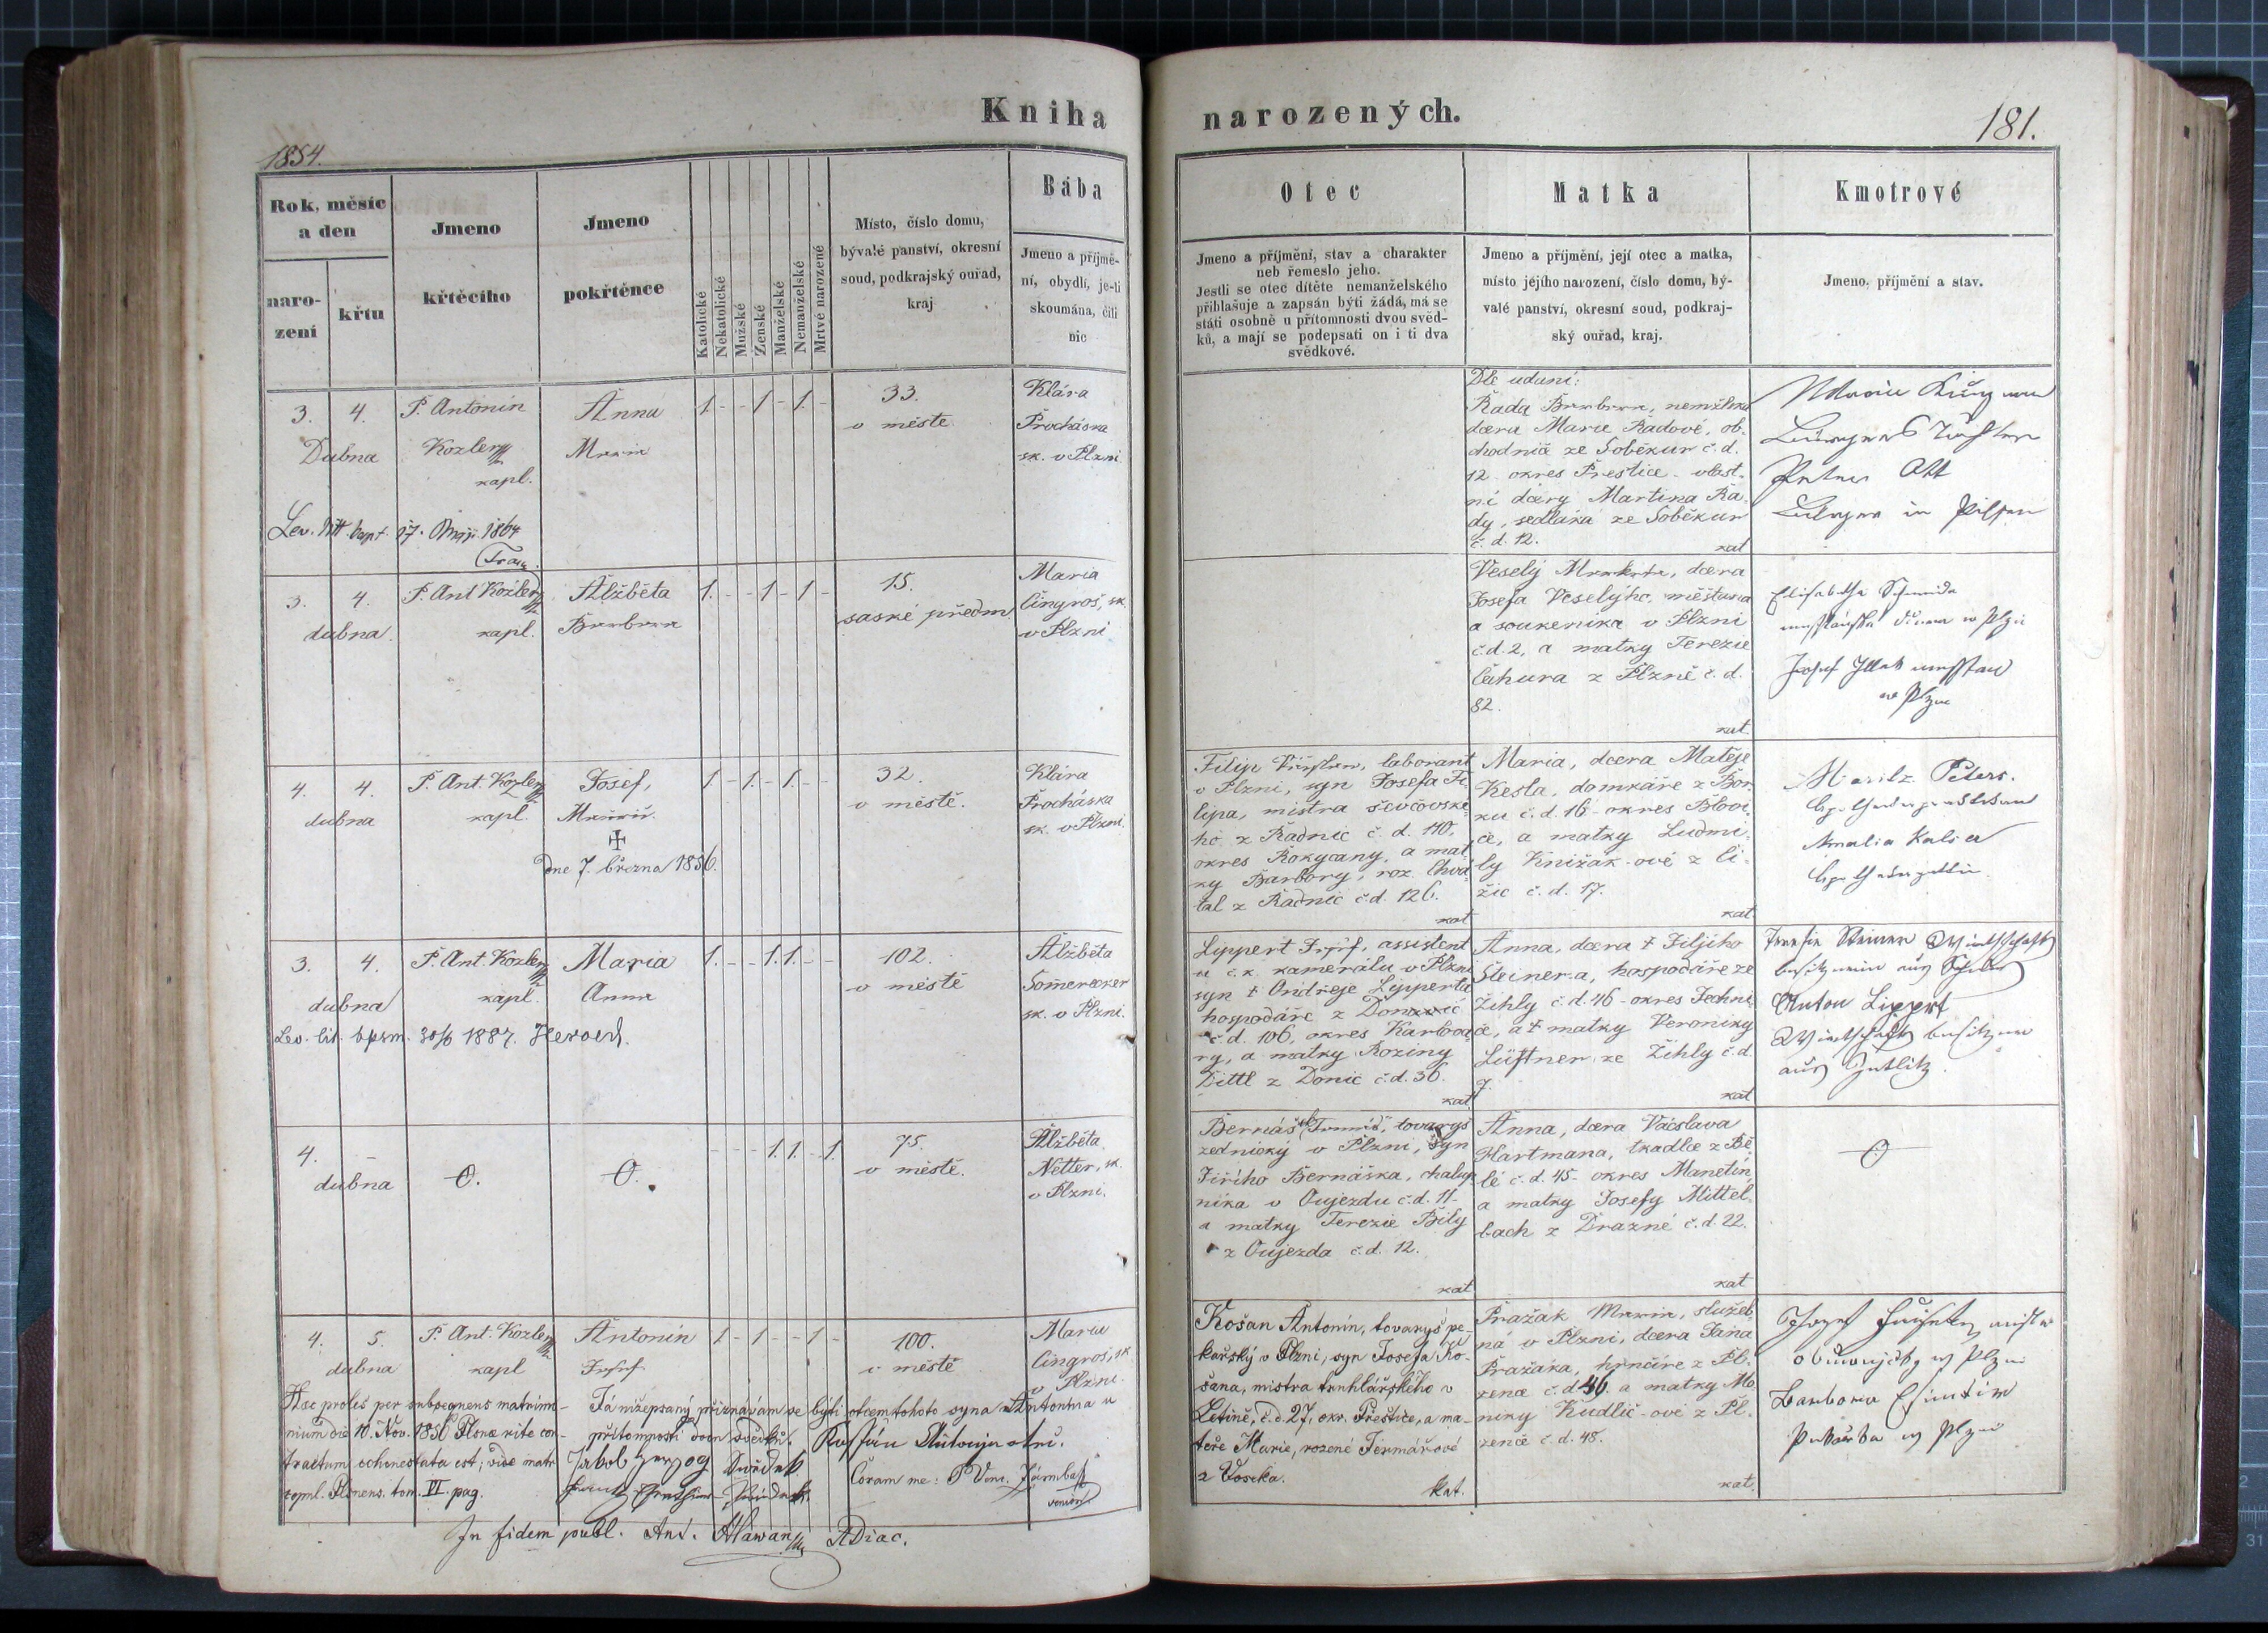 Kniha
narozených.
1854.
181.
Rok, měsíc
a den
naro-
zení
křtu
Jmeno
křtěcího
Jmeno
pokřtěnce
Katolické
Nekatolické
Mužské
Ženské
Manželské
Nemanželské
Mrtvé narozené
Místo, číslo domu,
bývalé panství, okresní
soud, podkrajský ouřad,
kraj
Bába
Jmeno a příjmě-
ní, obydlí, je-li
skoumána, čili
nic
Otec
Jmeno a příjmění, stav a charakter
neb řemeslo jeho.
Jestli se otec dítěte nemanželského
přihlašuje a zapsán býti žádá, má se
státi osobně u přítomnosti dvou svěd-
ků, a mají se podepsati on i ti dva
svědkové.
Matka
Jmeno a příjmění, její otec a matka,
místo jejího narození, číslo domu, bý-
valé panství, okresní soud, podkraj-
ský ouřad, kraj.
Kmotrové
Jmeno, příjmění a stav.
3. 4.
Dubna
P. Antonín
Kozler
kapl.
Anna
Maria
1. - - 1 - 1. -
33.
v městě
Klára
Procháska
sk. v Plzni
Lev. litt. bapt. 17. 1864
Dle udání:
Řada Barbora, nemžlská
dcera Marie Řadové, ob-
chodnice ze Soběkur č. d.
12 - okres Přestice - vlast-
ní dcery Martina Řa-
dy, sedláka ze Soběkur
č. d. 12.
kat
Peter Ott
in Pilsen
3. 4.
dubna.
P. Ant Kozler
kapl.
Alžběta
Barbora
1. - - 1 - 1 -
15.
saské předm
Maria
Cingroš, sk.
v Plzni
Veselý Markéta, dcera
Josefa Veselýho, měštana
a soukeníka v Plzni
č. d. 2, a matky Terezie
Čihura z Plzně č. d.
82.
kat.
Elisabetha Schmida
Josef
4. 4.
dubna
P. Ant. Kozler
kapl.
Josef,
✝
Dne 7. března 1856.
1 - 1. - 1. - -
32.
v městě.
Klára
Procháska
sk. v Plzni.
Filip laborant
v Plzni, syn Josefa Fi-
lipa, mistra ševčovské-
ho z Radnic č. d. 110,
okres Rokycany, a mat-
ky Barbory, roz. Chvá-
tal z Radnic č. d. 126.
kat
Maria, dcera Matěje
Kesla, domkáře z Bor-
ku č. d. 16 - okres Blovi-
ce, a matky Ludmi-
ly Knížák-ové z Ci-
žic č. d. 17.
kat
Moritz Peters.
Amalia Kalser
3. 4.
dubna
P. Ant. Kozler
kapl.
Maria
Anna
1. - - 1. 1. - -
102.
v městě
Alžběta
Somerecker
sk. v Plzni.
Lev. lit. bpsm. 30/6 1887. Herold.
Lippert Josef, assistent
u c. k. kamerálu v Plzni
syn ✝ Ondřeje Lipperta
hospodáře z
č. d. 106, okres Karlova-
ry, a matky Roziny
Dittl z Donic č. d. 36.
kat
Anna, dcera ✝ Filjiho
Steiner-a, hospodáře ze
Žihly č. d. 46 - okres Jechni-
ce, a ✝ matky Veroniky
Lüftner ze Žihly č. d.
7.
kat
Theresia Steiner
Anton Lippert
4. -
dubna
O.
O.
- - - 1. 1. - 1.
75.
v městě.
Alžběta
Netter, sk.
v Plzni.
Bernášek tovaryš
zednický v Plzni, syn
Jiřího Bernáška, chalup-
níka v Oujezdu č. d. 11 -
a matky Terezie Bílý
z Oujezda č. d. 12.
kat
Anna, dcera Václava
Hartmana, tkadlce z Bě-
lé č. d. 45 - okres Manetín
a matky Josefy Mittel-
bach z Dražné č. d. 22.
kat
O
4. 5.
dubna
P. Ant. Kozler
kapl
Antonín
Josef
1 - 1 - - 1 -
100.
v městě
Maria
Cingroš, sk
v Plzni.
Haec proles per subsequens matrimo-
nium die 10. Nov. 1856 Plsnae rite con-
tractum cohonestata est; vide matr.
copul. Plsnens. tom. VI. pag.
Já nížepsaný přiznávám se býti otcem tohoto syna Antonína u
přítomnosti dvou svědků.
Jakob Herzog Svědek
Coram me: P. Venc.
In fidem publ. Ant. Hlawan ADiac.
Košan Antonín, tovaryš pe-
kařský v Plzni, syn Josefa Ko-
šana, mistra truhlářského v
Letině, č. d. 27, okr. Přeštice, a ma-
teře Marie, rozené Fermářové
z Voseka.
kat.
Pražák Maria, služeb-
ná v Plzni, dcera Jana
Pražáka, hrnčíře z Pl-
zence č. d. 46. a matky Mo-
niky Kudlič-ové z Pl-
zence č. d. 48.
kat.
Barbora